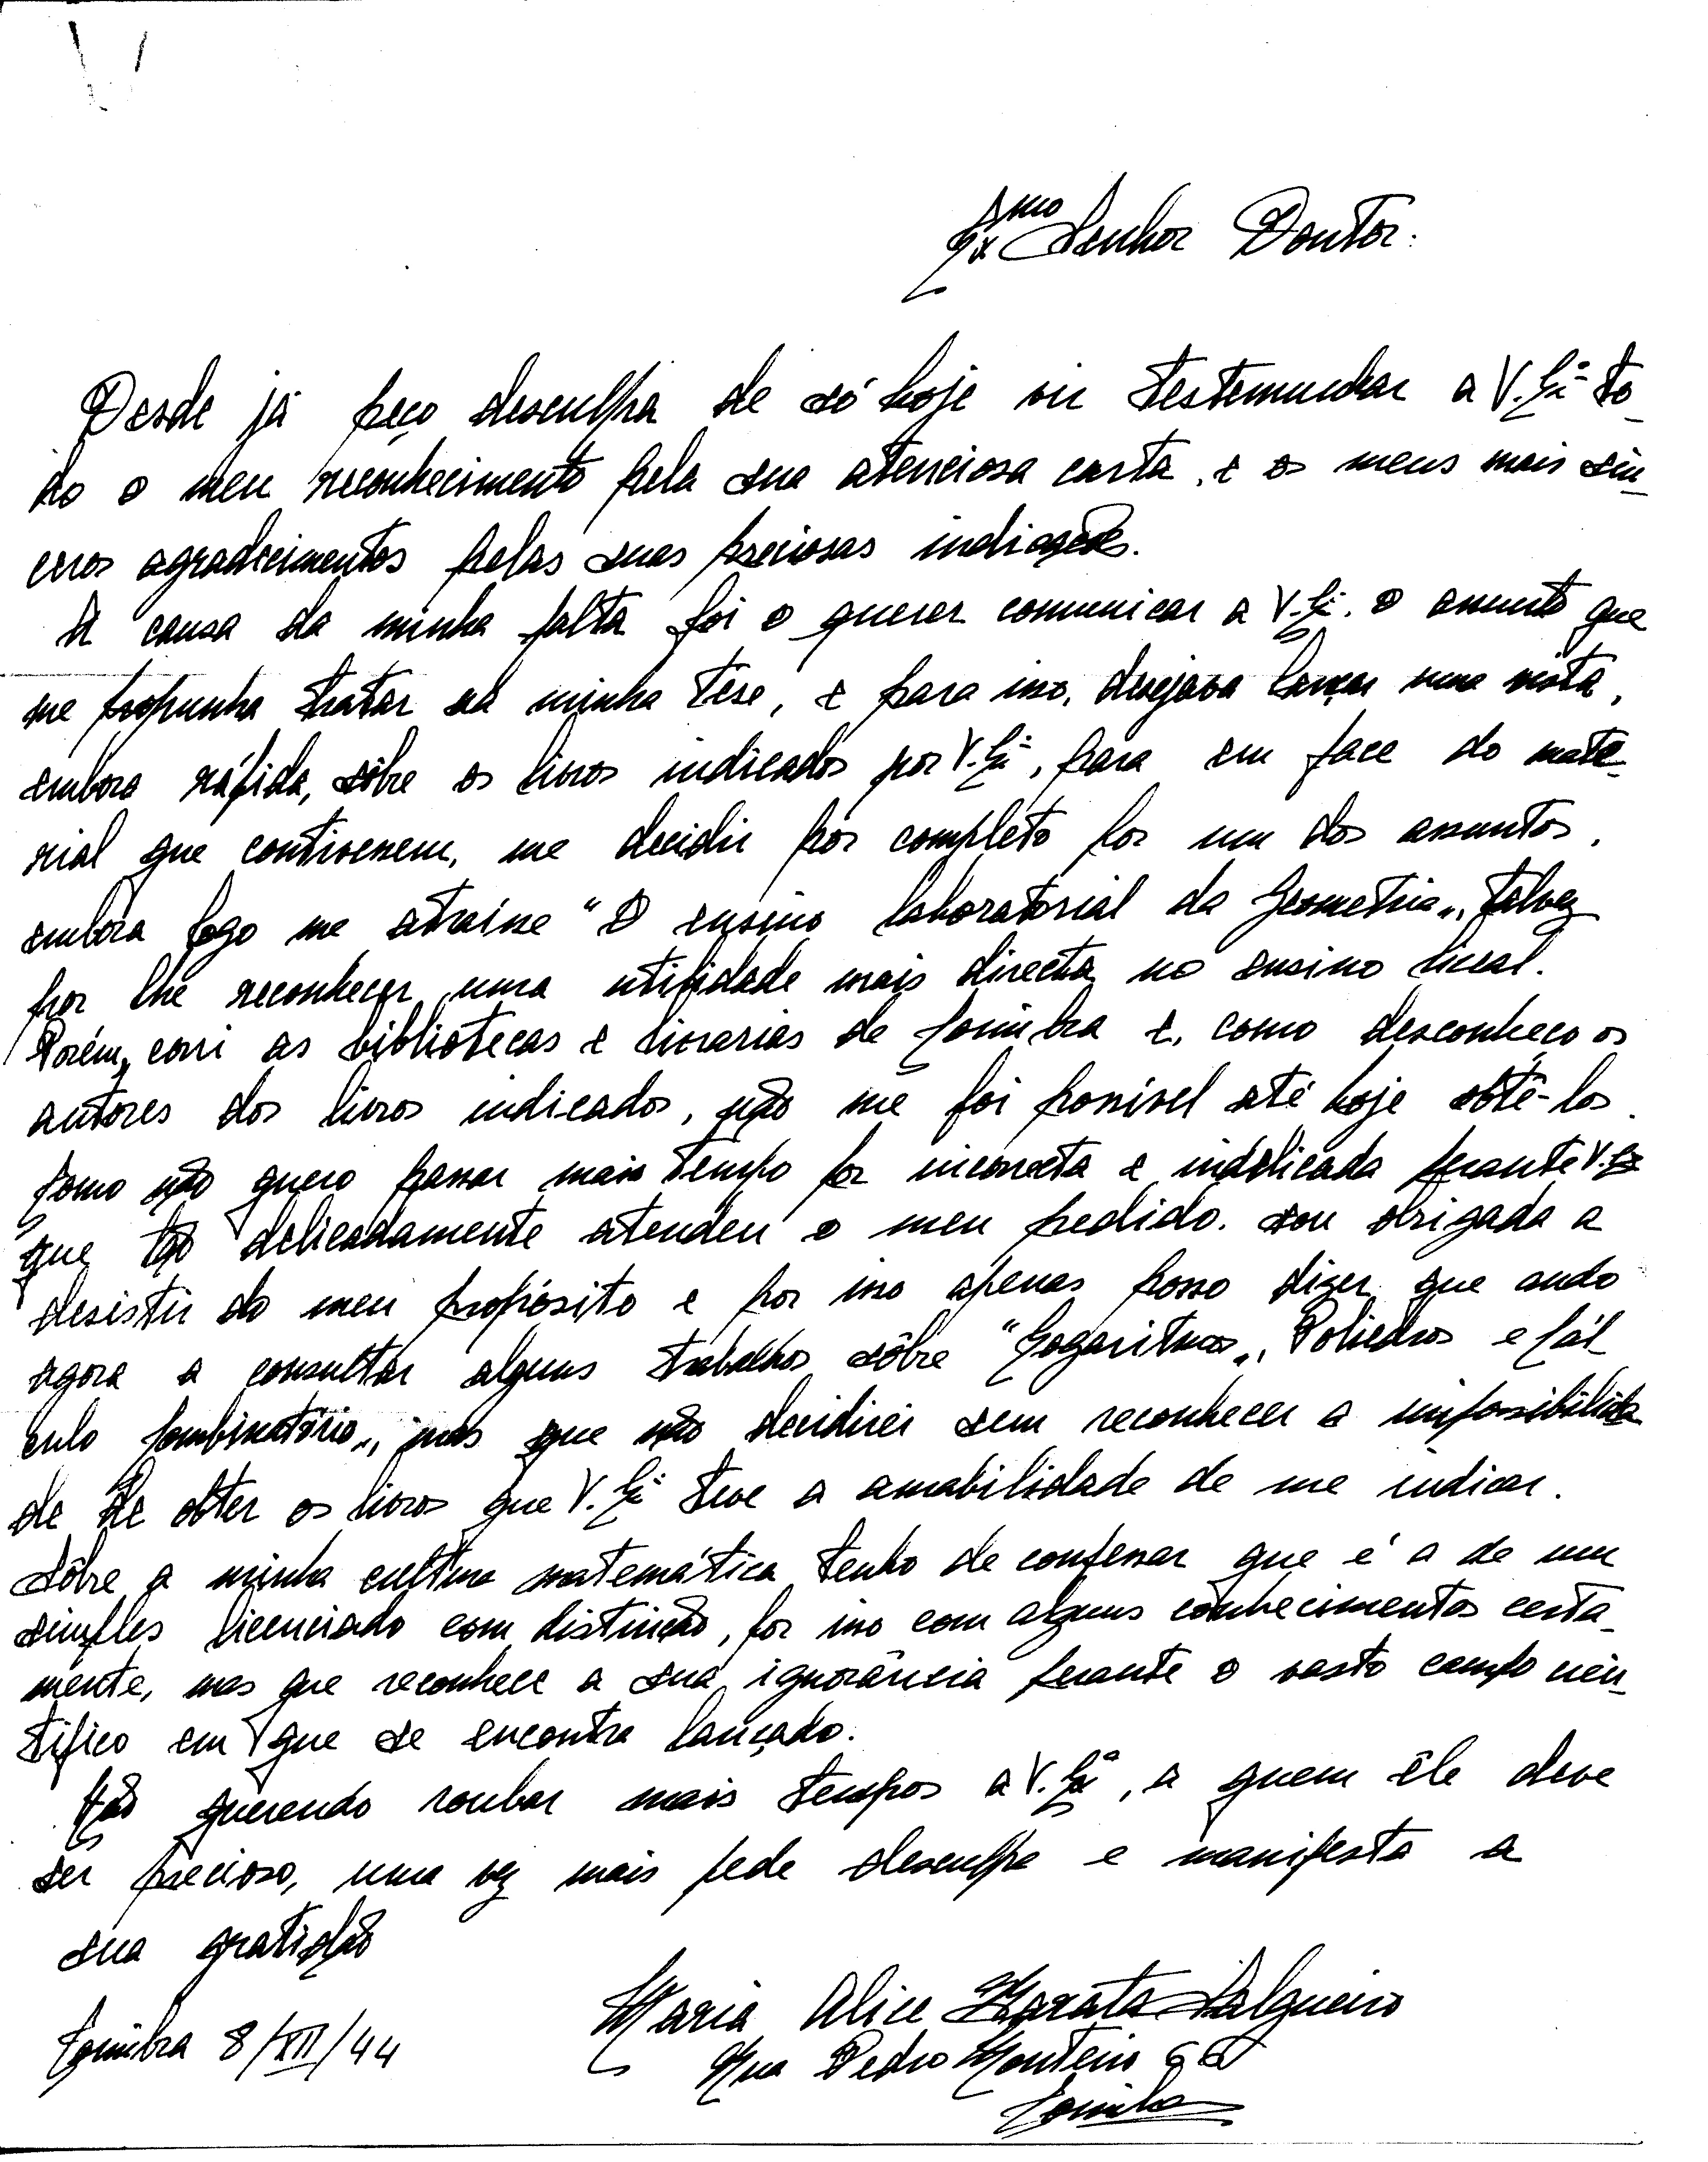 Exmo Senhor Doutor:
Desde já peço desculpa de só hoje vir testemunhar a V. Exª to-
do o meu reconhecimento pela sua atenciosa carta, e os meus mais sin-
ceros agradecimentos pelas suas preciosas indicações.
A causa da minha falta foi o querer comunicar a V. Exª. o assunto que
me propunha tratar na minha tése, e para isso, desejava lançar uma vista,
embora rápida, sôbre os livros indicados por V. Exª, para em face do mate-
rial que contivessem, me decidir por completo por um dos assuntos,
embora logo me atraísse "O ensino laboratorial da Geometria", talvez
por lhe reconhecer uma utilidade mais directa no ensino liceal.
Porém, corri as bibliotecas e livrarias de Coimbra e, como desconheço os
autores dos livros indicados, não me foi possível até hoje obtê-los.
Como não quero passar mais tempo por incorrecta e indelicada perante V. Ex
que tão delicadamente atendeu o meu pedido, sou obrigada a
desistir do meu propósito e por isso apenas posso dizer que ando
agora a consultar alguns trabalhos sôbre "Logaritmos", Poliedros e Cál
culo Combinatório", mas que não decidirei sem reconhecer a impossibilida
de de obter os livros que V. Exª teve a amabilidade de me indicar.
Sôbre a minha cultura matemática tenho de confessar que é a de um
simples licenciado com distinção, por isso com alguns conhecimentos certa-
mente, mas que reconhece a sua ignorância perante o vasto campo cien-
tífico em que se encontra lançado.
Não querendo roubar mais tempos a V. Exª, a quem êle deve
ser precioso, uma vez mais pede desculpa e manifesta a
sua gratidão
Maria Alice Zarata Salgueiro
Coimbra 8/XII/44
Rua Pedro Monteiro
Coimbra